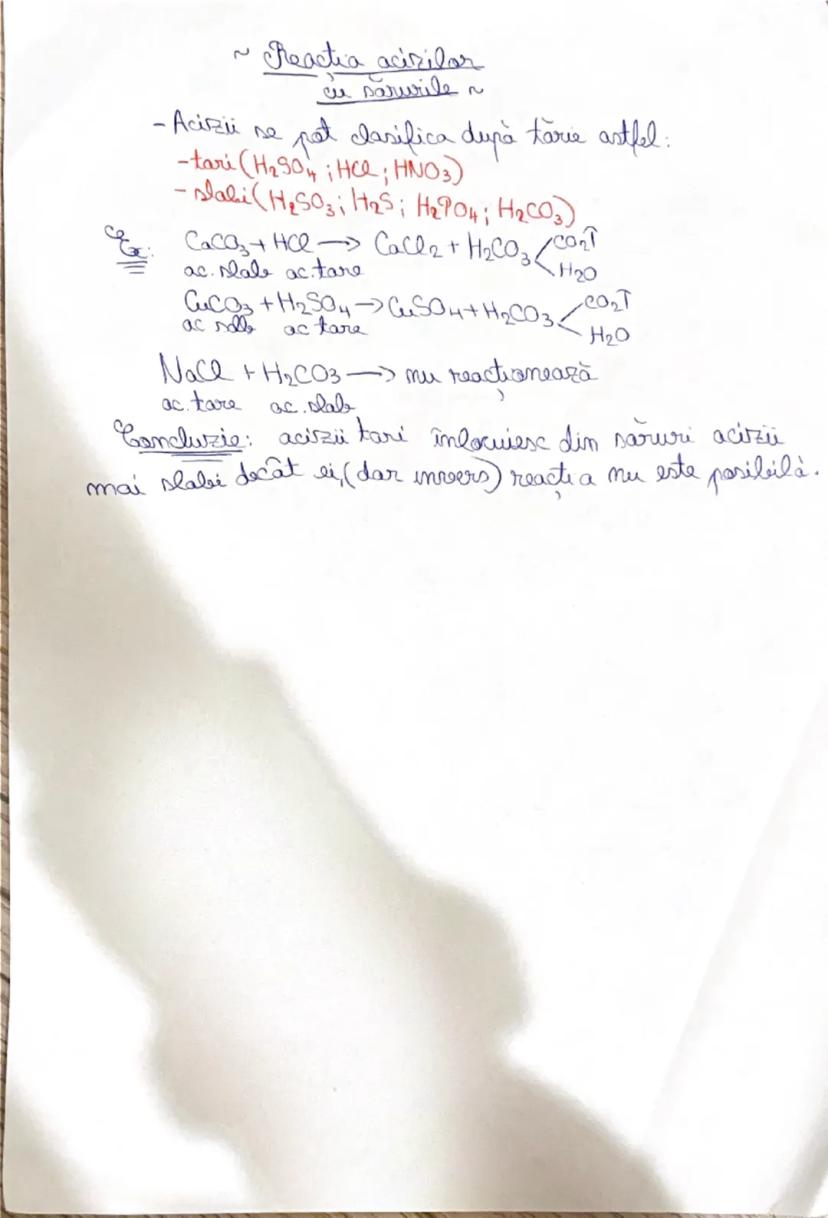 ~ Reactia acizilor
cu sărurile ~
- Acizii se pot clasifica după tărie astfel:
- tari (H₂SO₄; HCl; HNO₃)
- slabi (H₂SO₃; H₂S; H₂PO₄; H₂CO₃)
Ex: CaCO₃ + HCl → CaCl₂ + H₂CO₃ < CO₂↑
H₂O
ac. slab ac. tare
CuCO₃ + H₂SO₄ → CuSO₄ + H₂CO₃ < CO₂↑
H₂O
ac slab ac tare
NaCl + H₂CO₃ → nu reacționează
ac. tare ac. slab
Concluzie: acizii tari înlocuiesc din săruri acizii
mai slabi decât ei, (dar invers) reacția nu este posibilă.